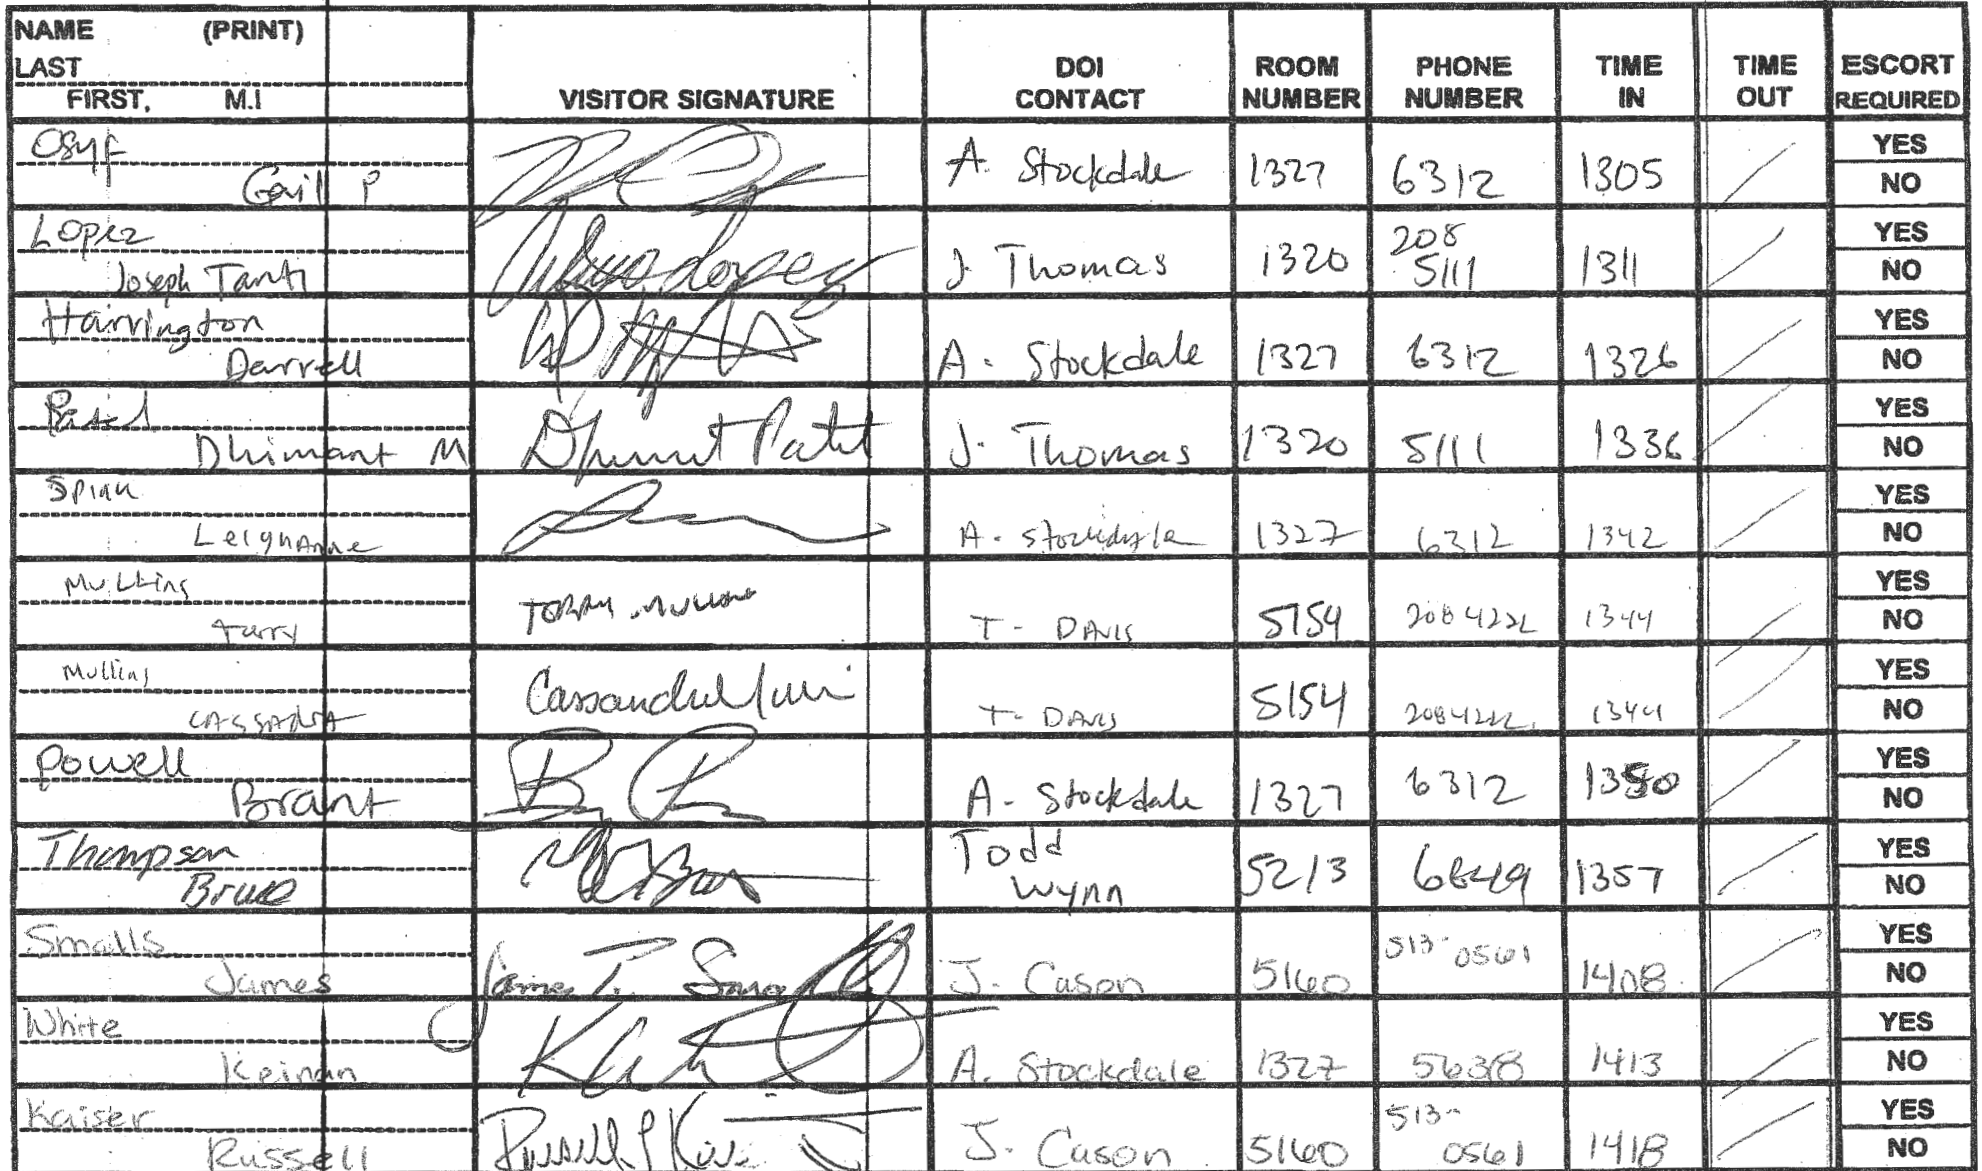 NAME (PRINT)
LAST
FIRST, M.I
VISITOR SIGNATURE
DOI CONTACT
ROOM NUMBER
PHONE NUMBER
TIME IN
TIME OUT
ESCORT REQUIRED
Osyf
Gail P
A. Stockdale 1327 6312 1305
YES
NO
Lopez
Joseph Tanti
J. Thomas 1320 208 5111 1311
YES
NO
Harrington
Darrell
A. Stockdale 1327 6312 1326
YES
NO
Patel
Dhimant M
Dhimant Patel
J. Thomas 1320 5111 1336
YES
NO
Leighanne
A. Stockdale 1327 6312 1342
YES
NO
Mullins
Terry
Terry Mullins
T- DAVIS 5154 2084222 1344
YES
NO
Mullins
CASSADRA
T- DAVIS 5154 2084222 1344
YES
NO
Powell
Brant
A- Stockdale 1327 6312 1350
YES
NO
Thompson
Bruce
Todd Wynn 5213 1357
YES
NO
Smalls
James
James T. Smalls
J- Cason 5160 513-0561 1408
YES
NO
White
Keinan
A. Stockdale 1327 5638 1413
YES
NO
Kaiser
Russell
J- Cason 5160 513-0561 1418
YES
NO